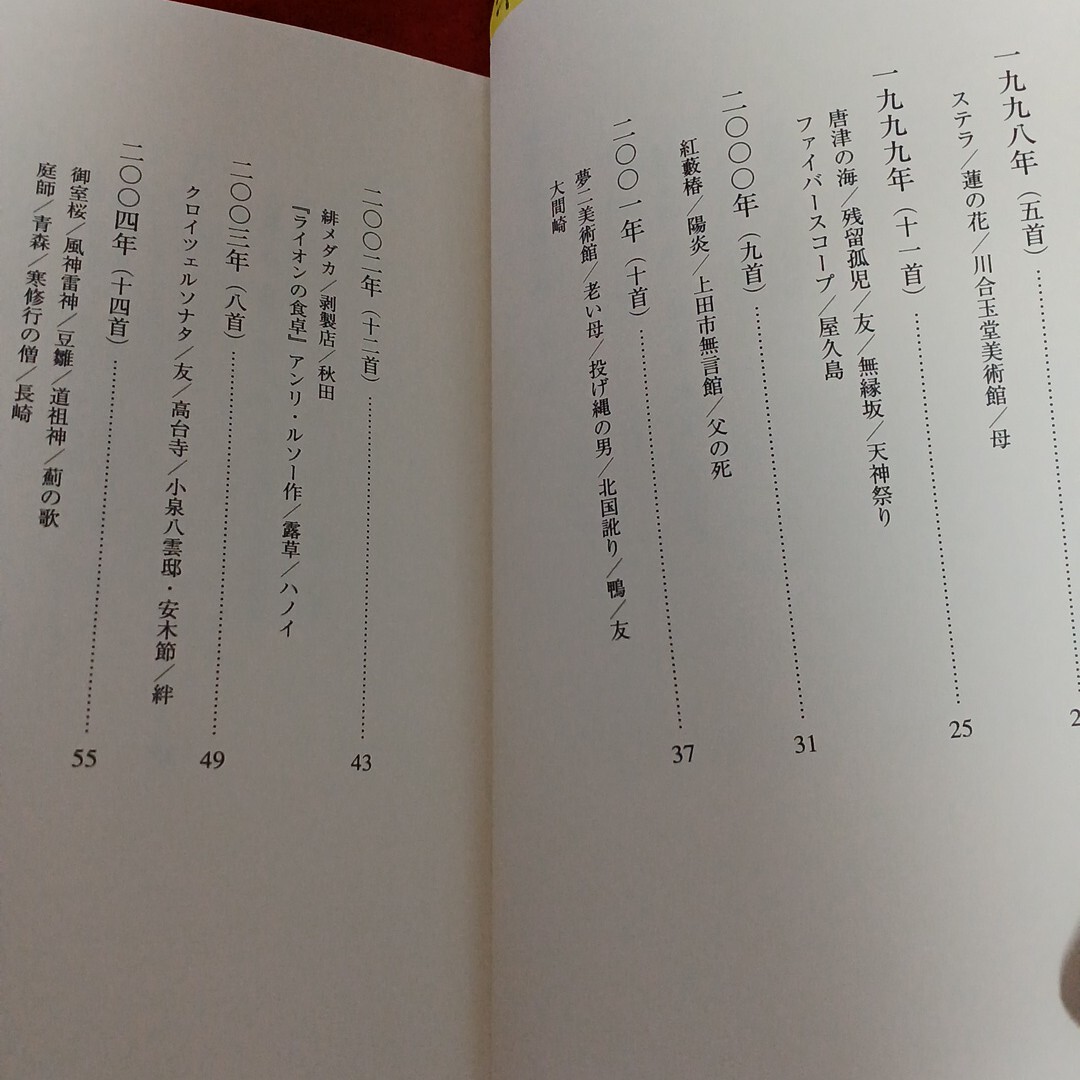 一九九八年（五首）………… 25
ステラ／蓮の花／川合玉堂美術館／母
一九九九年（十一首）………… 31
唐津の海／残留孤児／友／無縁坂／天神祭り
ファイバースコープ／屋久島
二〇〇〇年（九首）………… 37
紅藪椿／陽炎／上田市無言館／父の死
二〇〇一年（十首）
夢二美術館／老い母／投げ縄の男／北国訛り／鴨／友
大間崎
二〇〇二年（十二首）………… 43
緋メダカ／剥製店／秋田
『ライオンの食卓』アンリ・ルソー作／露草／ハノイ
二〇〇三年（八首）………… 49
クロイツェルソナタ／友／高台寺／小泉八雲邸・安木節／絆
二〇〇四年（十四首）………… 55
御室桜／風神雷神／豆雛／道祖神／薊の歌
庭師／青森／寒修行の僧／長崎